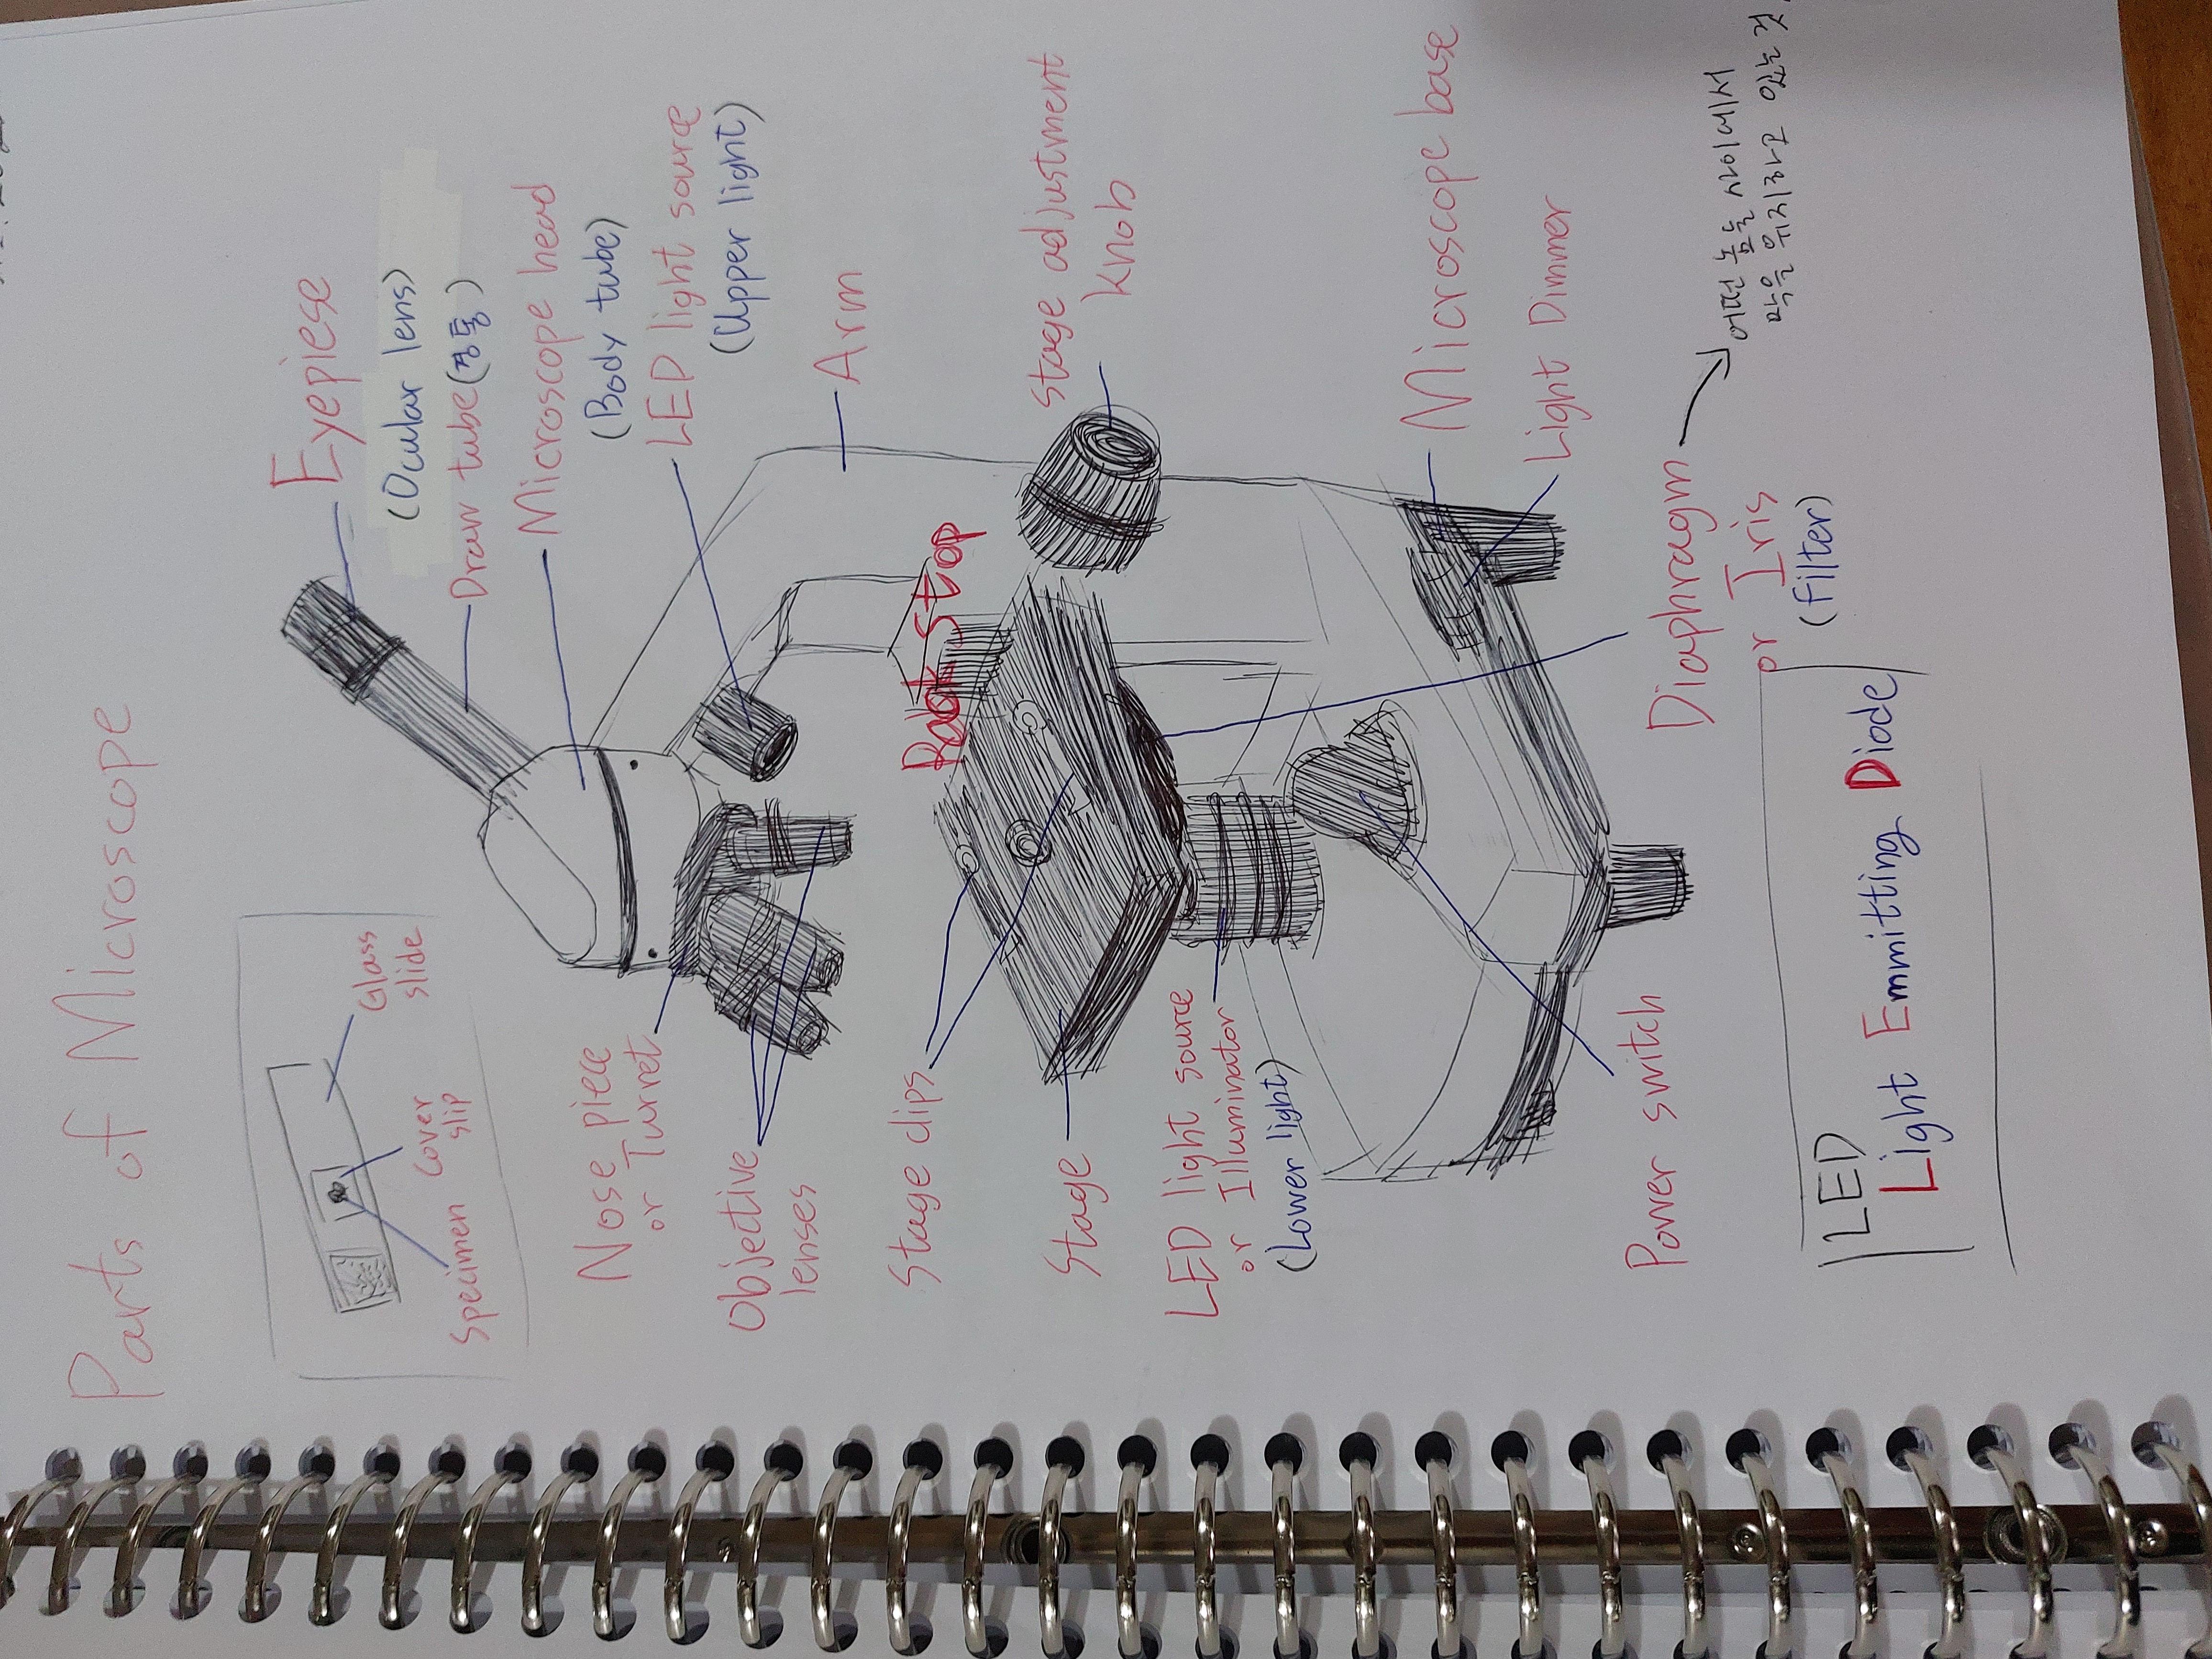 Parts of Microscope
Glass
slide
Cover
slip
Specimen
Eyepiese
(Ocular lens)
Draw tube(경통)
Microscope head
(Body tube)
LED light source
(Upper light)
Arm
Nose piece
or Turret
Objective
lenses
Rack Stop
Stage adjustment
knob
Stage clips
Stage
LED light source
or Illuminator
(Lower light)
Microscope base
Light Dimmer
Power switch
Diaphragm
or Iris
(filter)
어떤 놈들 사이에서
막을 위치하고 있는 것
LED
Light Emmitting Diode